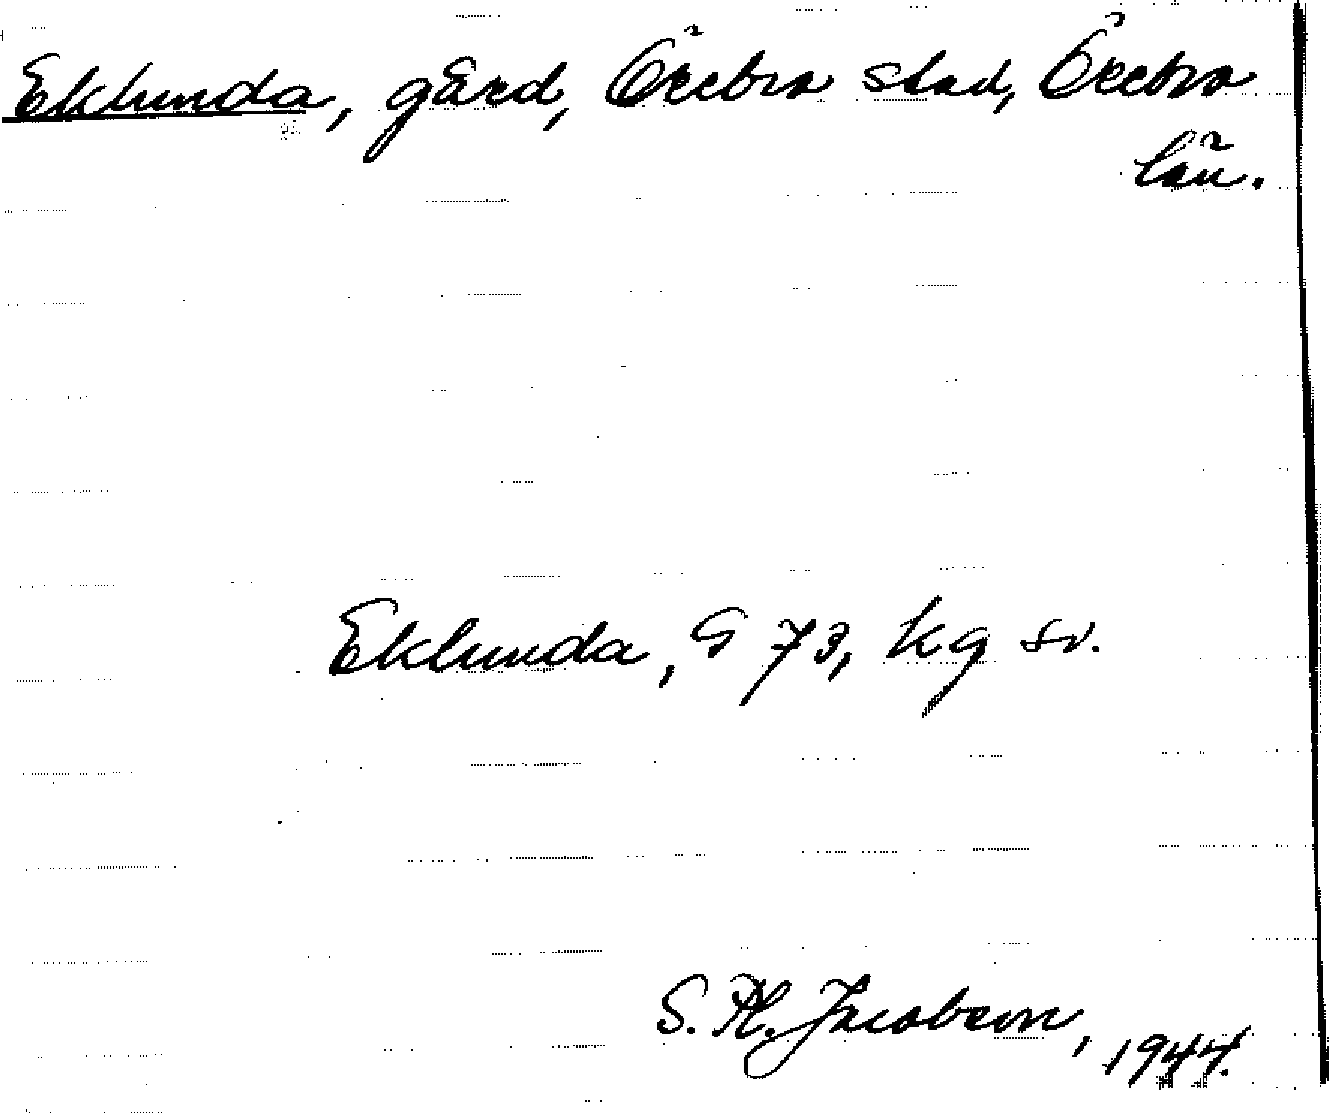 Eklunda, gård, Örebro stad, Örebro
län.
Eklunda, G 73, kg sv.
S. Jacobson, 1944.